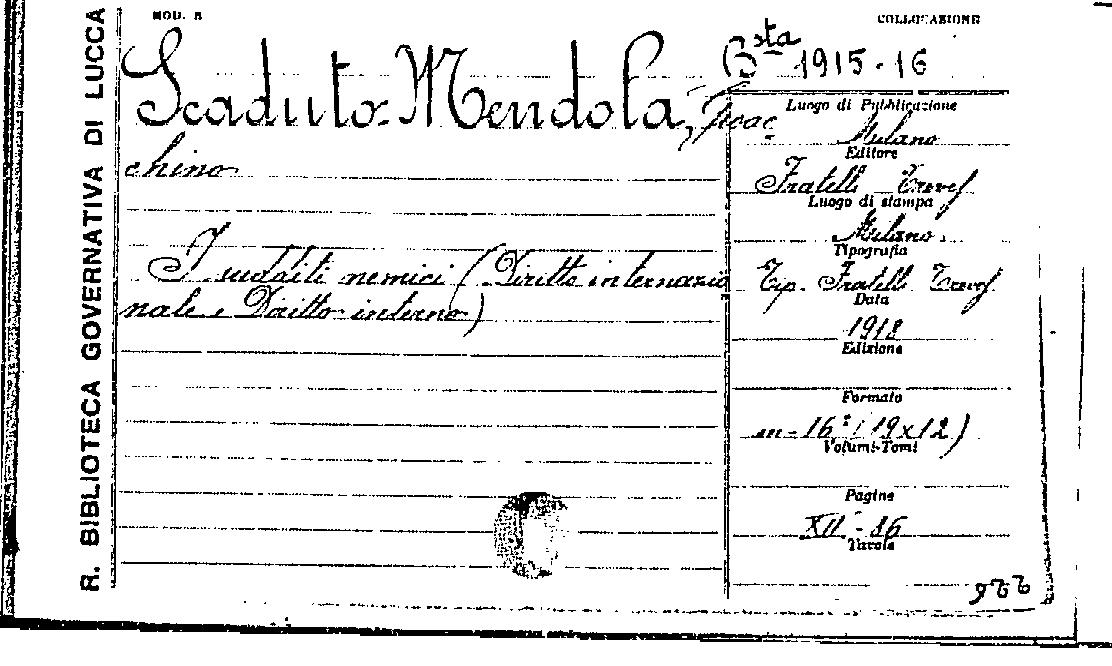 R. BIBLIOTECA GOVERNATIVA DI LUCCA
MOD. B
COLLOCAZIONE
Bsta 1915-16
Scaduto-Mendola, Gioac
chino
I sudditi nemici (Diritto internazio
nale e Diritto interno)
Luogo di Pubblicazione
Milano
Editore
Fratelli Treves
Luogo di stampa
Milano.
Tipografia
Tip. Fratelli Treves
Data
1918
Edizione
Formato
in-16º (19x12)
Volumi-Tomi
Pagine
XII-86
Tavole